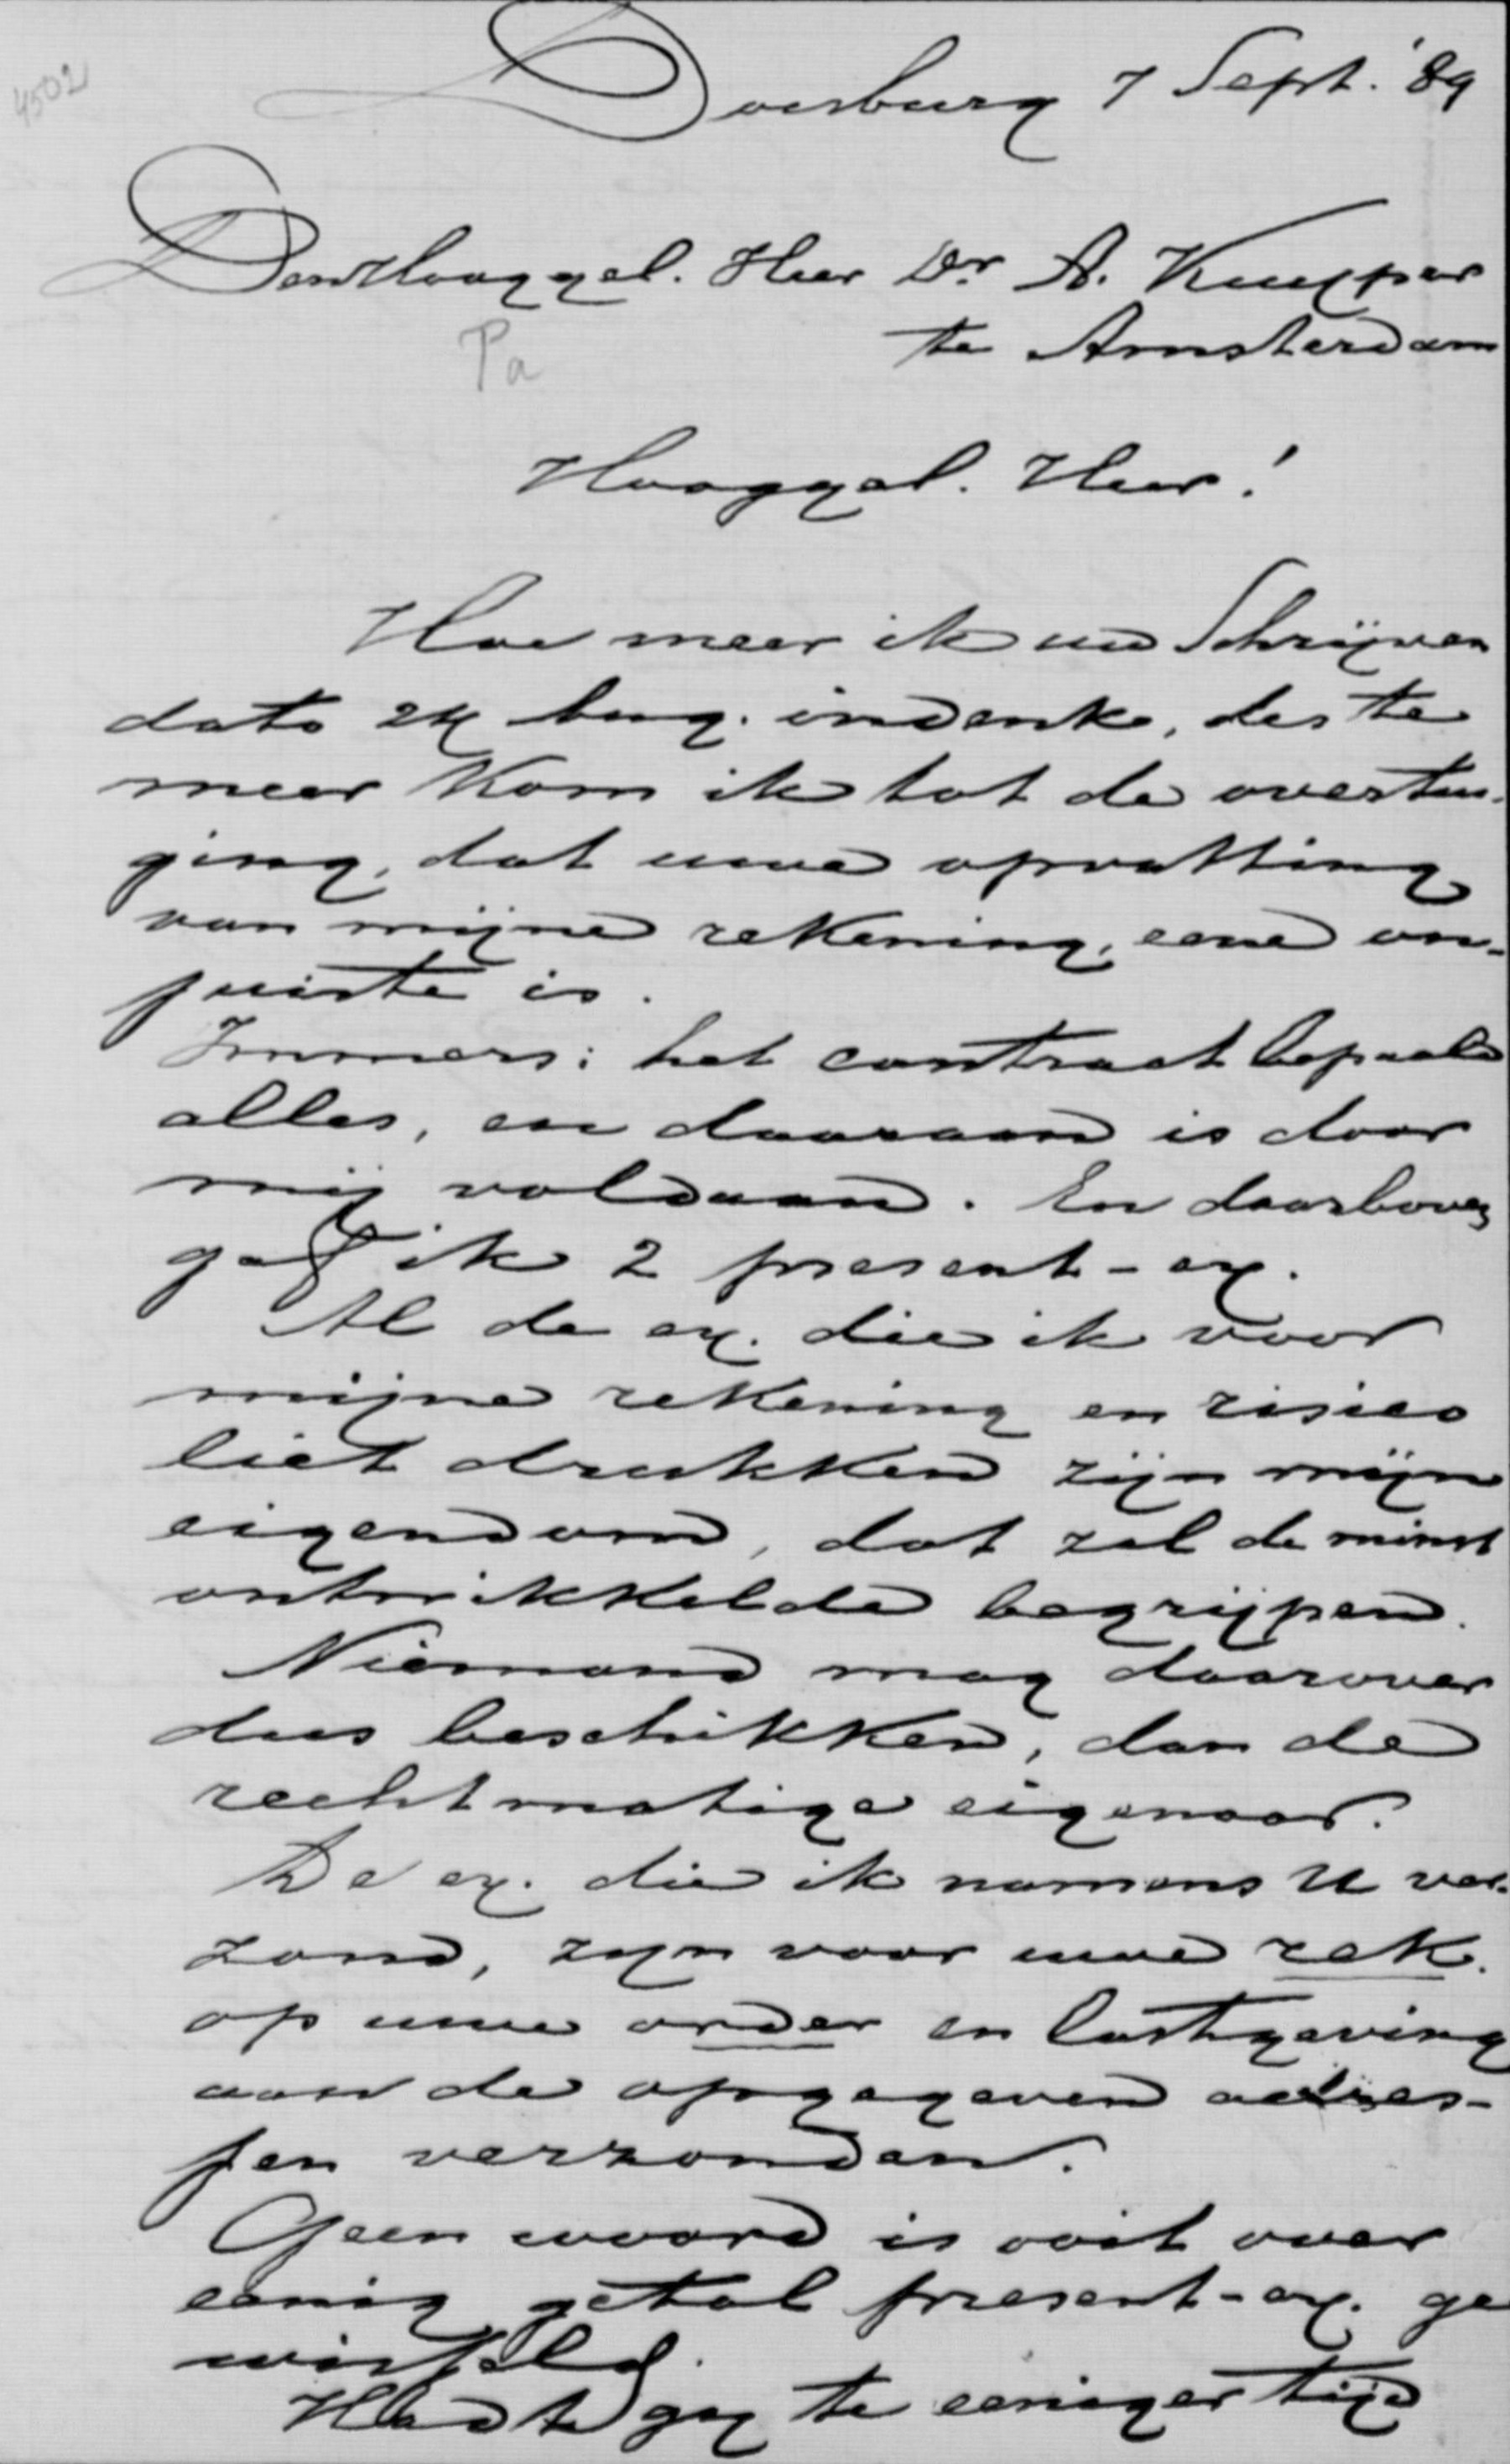 4502
Doesburg 7 Sept. '89
Den Hooggel. Heer Dr. A. Kuyper
te Amsterdam
Pa
Hooggel. Heer!
Hoe meer ik uw Schrijven
dato 24 Aug. indenke, des te
meer kom ik tot de overtui-
ging, dat uwe opvatting
van mijne rekening, eene on-
juiste is.
Immers: het contract bepaalde
alles, en daaraan is door
mij voldaan. En daarboven
gaf ik 2 present-ex.
Al de ex. die ik voor
mijne rekening en risico
liet drukken zijn mijn
eigendom, dat zal de minst
ontwikkelde begrijpen.
Niemand mag daarover
dus beschikken, dan de
rechtmatige eigenaar.
De ex. die ik namens U ver-
zond, zijn voor uwe rek.
op uwe order en lastgeving
aan de opgegeven adres-
sen verzonden.
Geen woord is ooit over
eenig getal present-ex. ge
wisseld.
Hadt gij te eeniger tijd